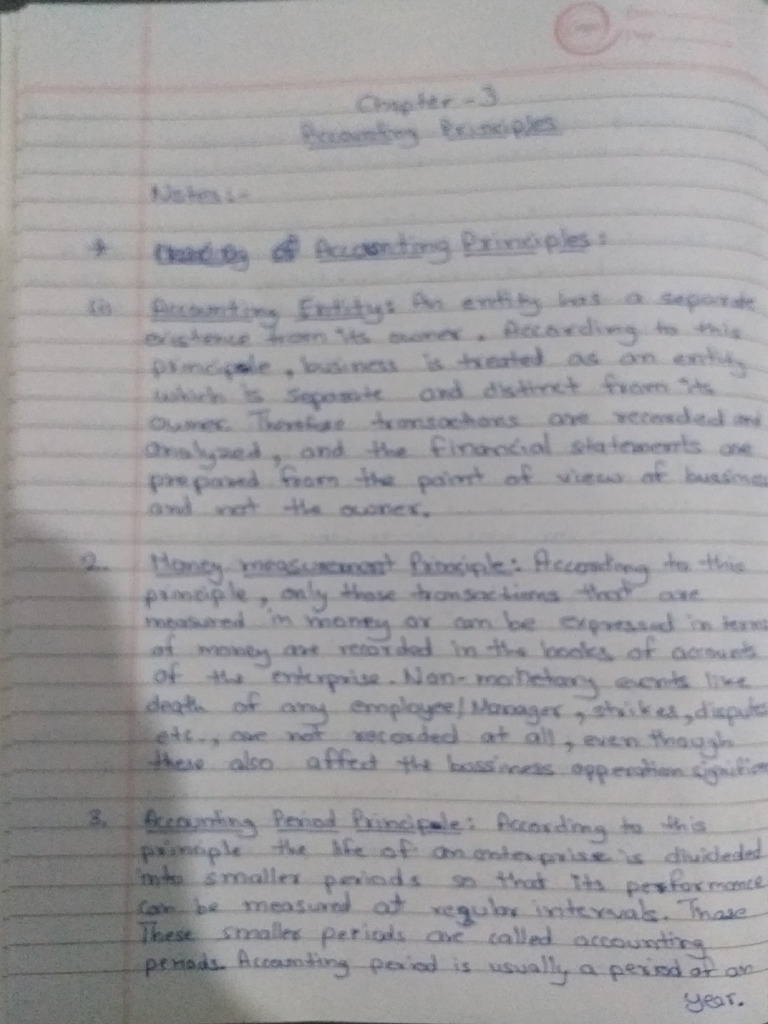 Chapter - 3
Accounting Principles
Notes :-
* of Accounting Principles :
(i) Accounting Entity : An entity has a separate
existence from its owner. According to this
principle, business is treated as an entity
which is separate and distinct from its
owner. Therefore transactions are recorded and
analyzed, and the financial statements are
prepared from the point of view of
and not the owner.
2. Money measurement Principle : According to this
principle, only those transactions that are
measured in money or can be expressed in terms
of money are recorded in the books of accounts
of the enterprise. Non-monetary events like
death of any employee/Manager, strikes,
etc., are not recorded at all, even though
these also affect the bussiness opperation
3. Accounting Period Principle : According to this
principle the life of an enterprise is divideded
into smaller periods so that its performance
can be measured at regular intervals. Those
These smaller periods are called accounting
periods. Accounting period is usually a period of an
year.